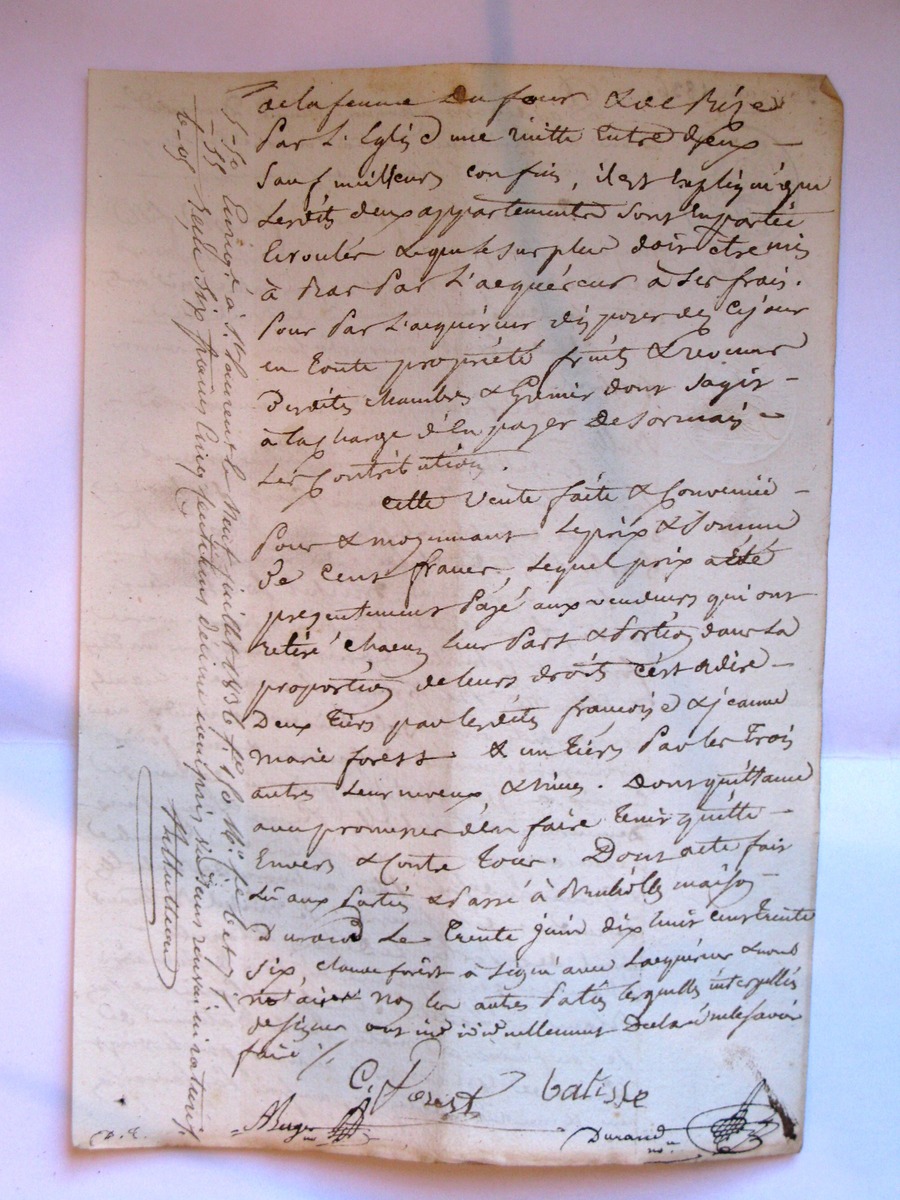 de la femme Dufour & de Bize
Par L'Eglise une voitte Entre deux
Sauf meilleurs confins, il est Expliqué que
Lesdits deux appartements sont En partie
Ecroulés & que le surplus doit être mis
à Bas Par L'acquéreur à ses frais.
Pour Par L'acquéreur disposer dès Cejour
en toute propriété fruits & revenus
Desdits chambres & Grenier dont Sagit
à la charge d'En payer Desormais
Les Contributions.
cette Vente faite & Convenue
Pour & moyennant Le prix & Somme
De Cent francs, Lequel prix a été
presentement Payé aux vendeurs qui ont
retiré chacun leur Part & Portion dans La
proportion de leurs droits c'est adire
Deux tiers par lesdits françoise & jeanne
marie forest & un tiers Par les trois
autres Leurs neveux & nièces. Dont quittance
avec promesse d'En faire tenir quitte
Envers & Contre tous. Dont acte fait
Lu aux Parties & Passé à maison
Durand Le trente juin dix huit cent trente
Six, claude forest à Signé avec Lacquéreur & nous
notaires non les autres Parties lesquelles interpellés
de signer ont individuellement Declaré ne le Savoir
faire ./.
C. Forest batisse
Auger Durand
nre
Enrgé à St Laurent le Neuf juillet 1836 fo
Reçu Six francs Cinq centimes decime compris